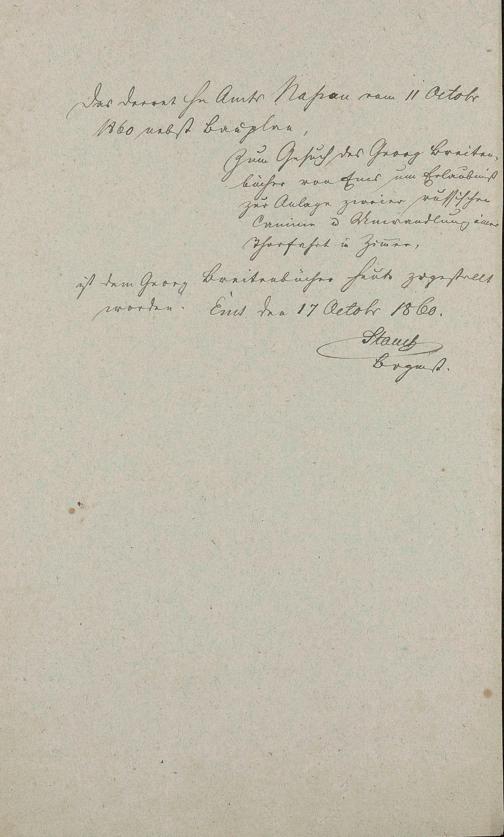 Das Decret Hz. Amts Nassau vom 11 Octobr
1860 nebst Bauplan,
Zum Gesuch des Georg Breiten-
bücher von Ems um Erlaubniß
zur Anlage zweier russischen
Camine u Umwandlung einer
Thorfahrt in Zimmer,
ist dem Georg Breitenbücher heute zugestellt
worden. Ems den 17 Octobr 1860.
Stauch
Brgmst.